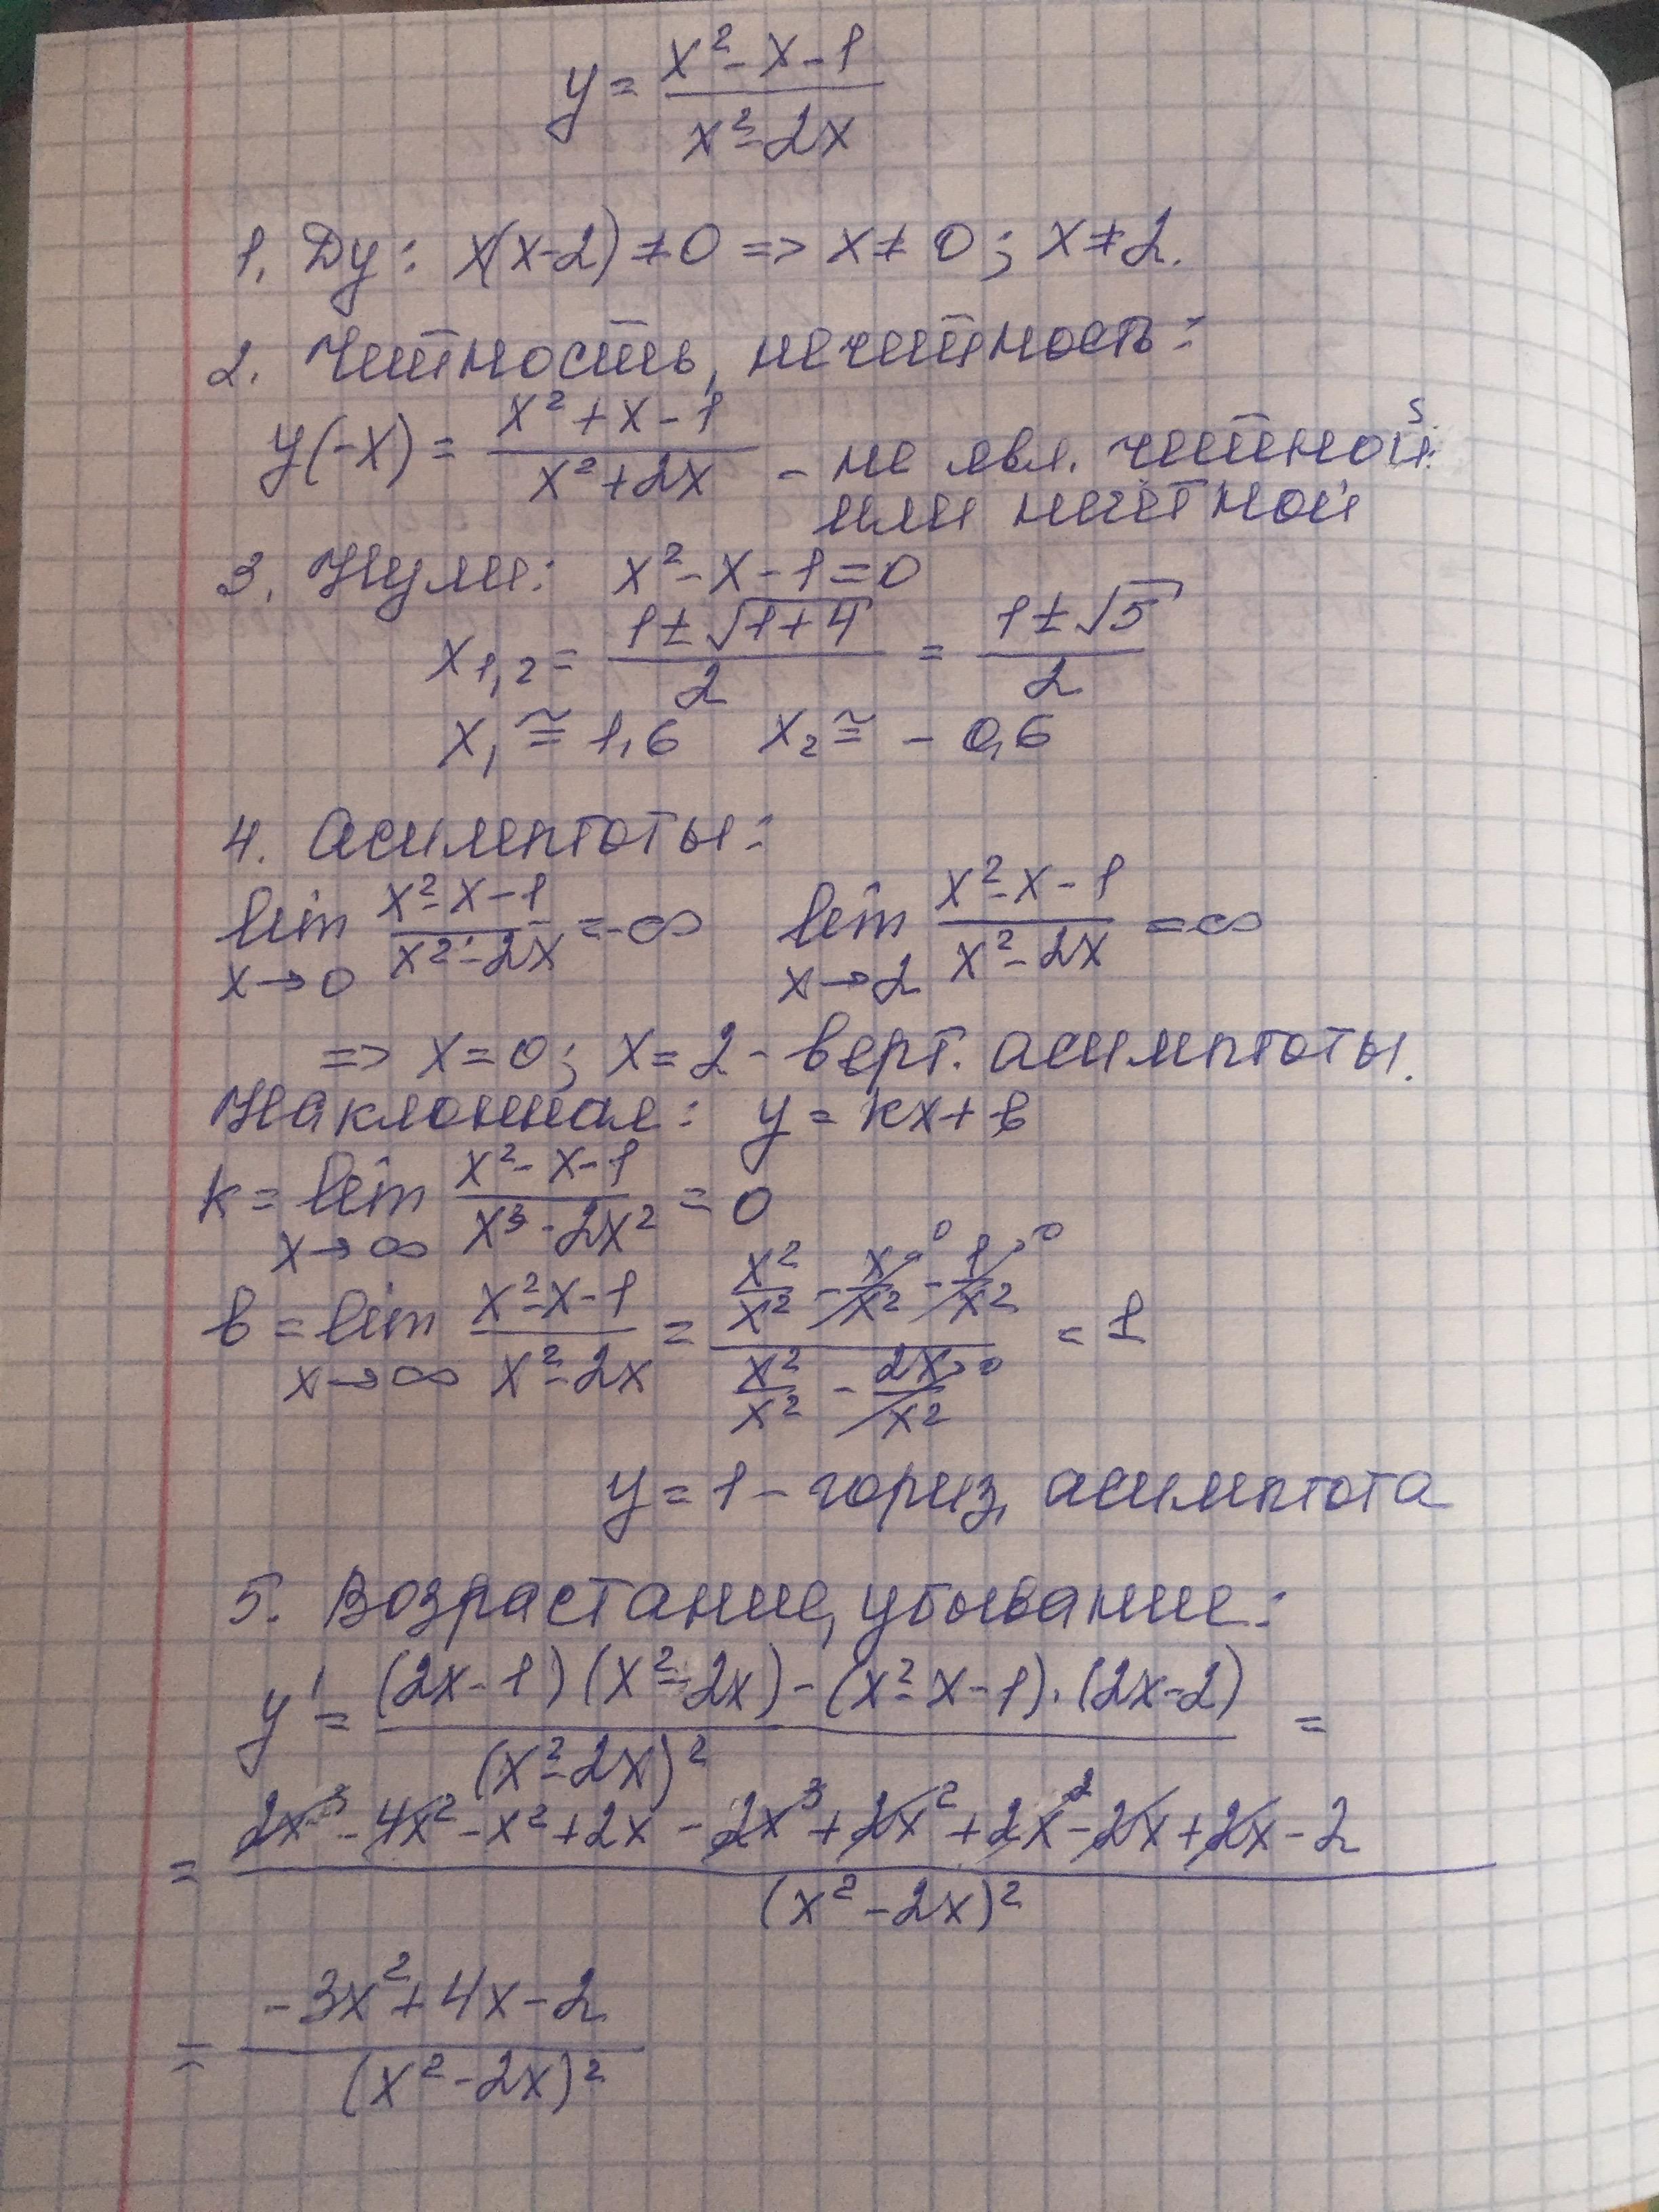 y = (x² - x - 1)/(x² - 2x)
1. Dy: x(x-2) ≠ 0 => x ≠ 0; x ≠ 2.
2. Чётность, нечётность:
y(-x) = (x² + x - 1)/(x² + 2x) - не явл. чётной
или нечётной
3. Нули: x² - x - 1 = 0
x₁,₂ = (1 ± √(1+4))/2 = (1 ± √5)/2
x₁ ≅ 1,6 x₂ ≅ - 0,6
4. Асимптоты:
lim x→0 (x² - x - 1)/(x² - 2x) = -∞ lim x→2 (x² - x - 1)/(x² - 2x) = ∞
=> x = 0; x = 2 - верт. асимптоты.
Наклонная: y = kx + b
k = lim x→∞ (x² - x - 1)/(x³ - 2x²) = 0
b = lim x→∞ (x² - x - 1)/(x² - 2x) = (x²/x² - x/x²→0 - 1/x²→0)/(x²/x² - 2x/x²→0) = 1
y = 1 - гориз. асимптота
5. Возрастание, убывание:
y' = ((2x - 1)(x² - 2x) - (x² - x - 1)·(2x - 2))/(x² - 2x)² =
= (2x³ - 4x² - x² + 2x - 2x³ + 2x² + 2x² - 2x + 2x - 2)/(x² - 2x)²
= (-3x² + 4x - 2)/(x² - 2x)²